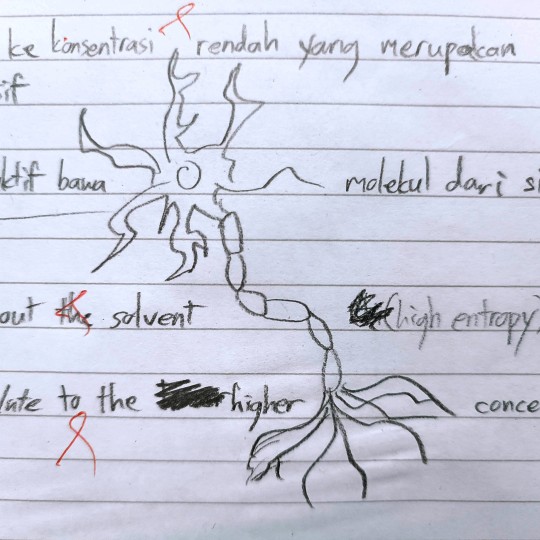 ke konsentrasi rendah yang merupakan
if
ktif bawa molekul dari si
out the solvent (high entropy)
late to the higher conce